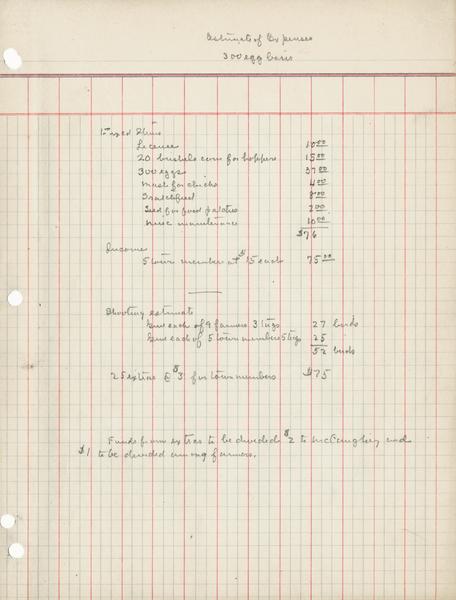 Estimate of Expenses
300 egg basis
Fixed Items
License 10.00
20 bushels corn for hoppers 15.00
300 eggs 37.00
Mash for chicks 4.00
8.00
Seed for food patches 2.00
Misc maintenance 10.00
$76
Income
5 town member at $15 each 75.00
Shooting estimate
Give each of 9 farmers 3 tags 27 birds
Give each of 5 town members 5 tags 25
52 birds
25 extras @ $3 for town members $75
Funds from extras to be divided $2 to McCaughey and
$1 to be divided among farmers.